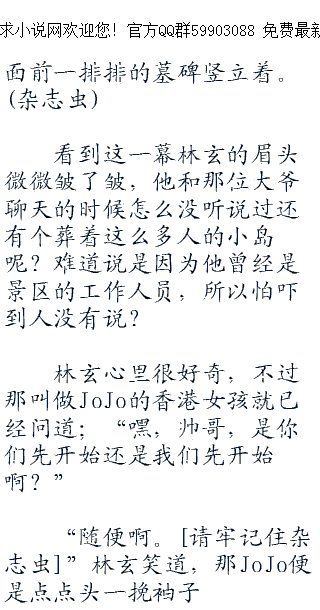 求小说网欢迎您! 官方QQ群59903088 免费最新
面前一排排的墓碑竖立着。
(杂志虫)
看到这一幕林玄的眉头
微微皱了皱，他和那位大爷
聊天的时候怎么没听说过还
有个葬着这么多人的小岛
呢？难道说是因为他曾经是
景区的工作人员，所以怕吓
到人没有说？
林玄心里很好奇，不过
那叫做JoJo的香港女孩就已
经问道；“嘿，帅哥，是你
们先开始还是我们先开始
啊？”
“随便啊。[请牢记住杂
志虫]”林玄笑道，那JoJo便
是点点头一挽袖子